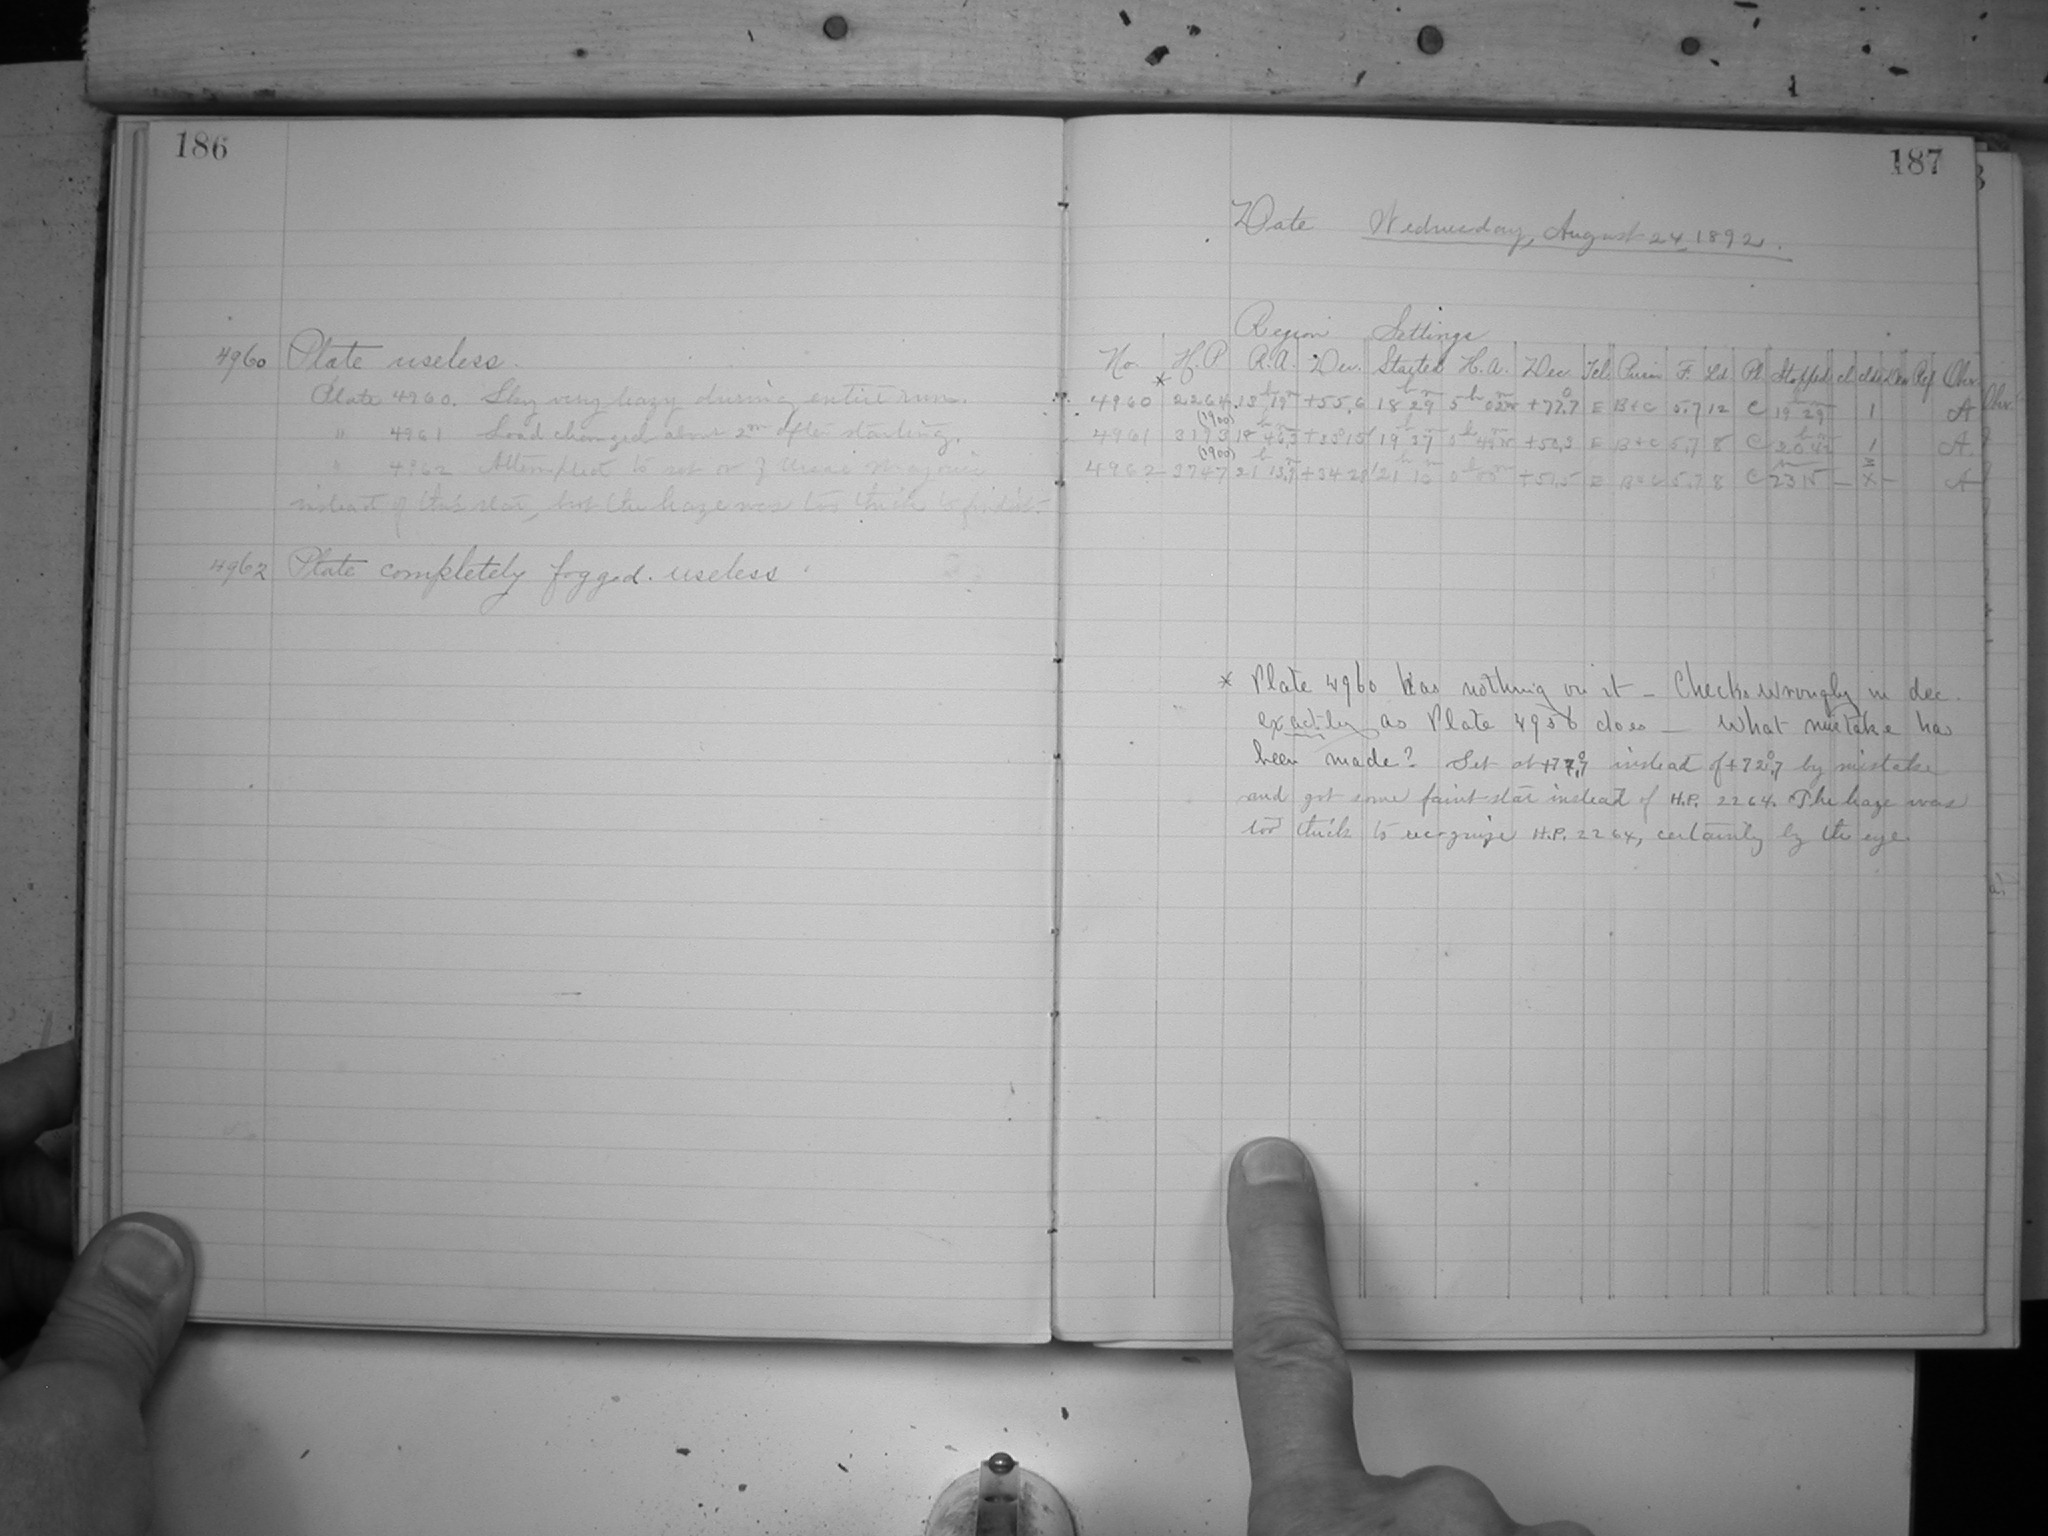 186
4960 Plate useless.
Plate 4960. Sky very hazy during entire run.
" 4961 Load changed about 2m after starting.
" 4962 Attempted to set on ζ Ursae Majoris
instead of this star, but the haze was too thick to find it.
4962 Plate completely fogged. useless
187
Date Wednesday, August 24, 1892.
Region Settings
No. H.P. R.A. Dec. Started H.A. Dec. Tel. Prism F. Ld Pl Stopped cl clds Dew Ref Obsr.
4960 * 2264 13h 19m +55.6 18h 29m 5h 02m +77.°7 E B+C 5.7 12 C 19h 29m 1 A
(1900)
4961 3193 18h 46.3m +33°15' 19h 37m 0h 49m +50.3 E B+C 5.7 8 C 20h 42m 1 A
(1900)
4962 3747 21h 13.9m +34 28' 21h 13m +51.5 E B+C 5.7 8 C 23 15 — x — A
* Plate 4960 has nothing on it — Checks wrongly in dec.
exactly as Plate 4956 does — What mistake has
been made? Set at +77.°7 instead of +72.°7 by mistake
and got some faint star instead of H.P. 2264. The haze was
too thick to recognize H.P. 2264, certainly by the eye.